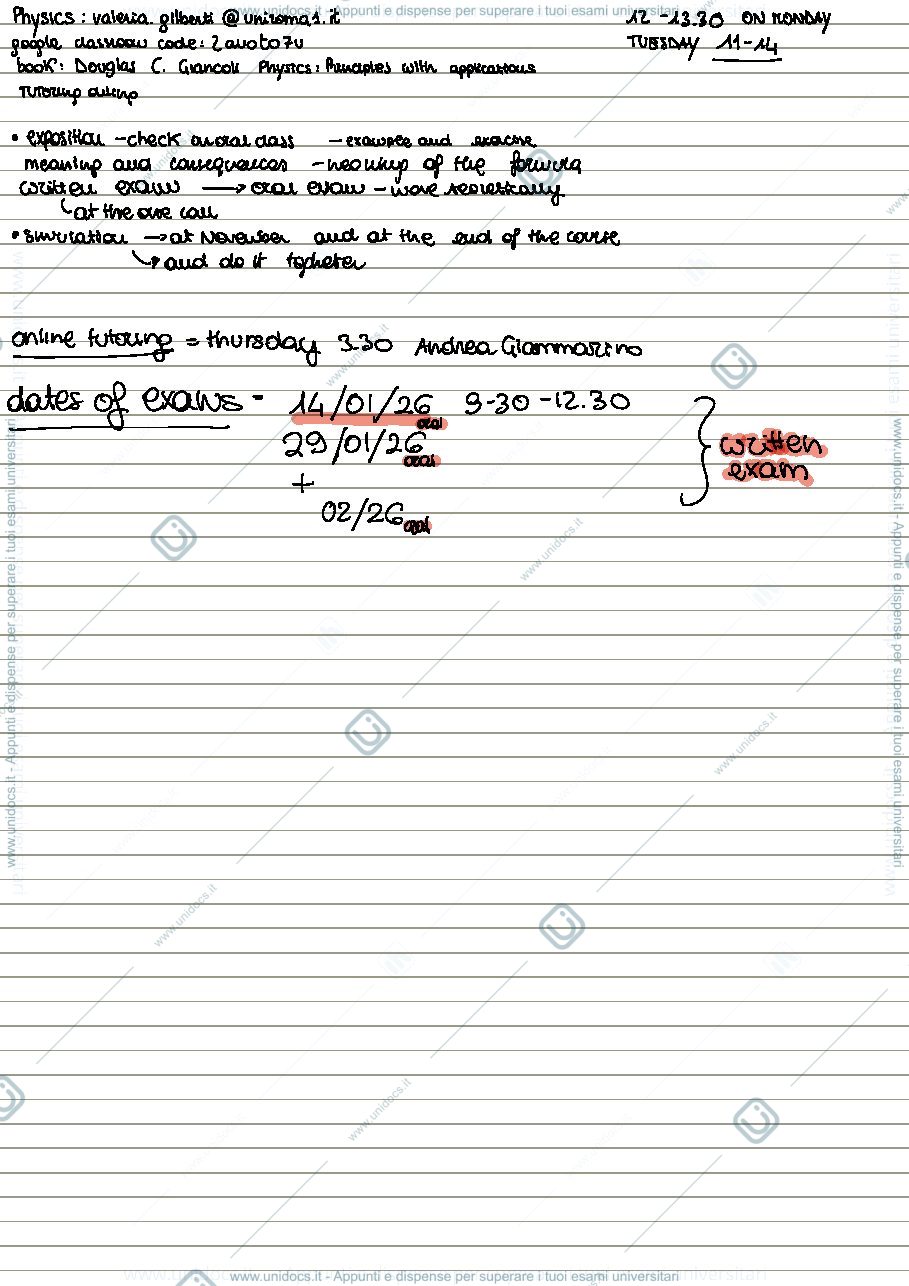 www.unidocs.it - Appunti e dispense per superare i tuoi esami universitari
Physics: valeria.gilberti@uniroma1.it
12-13.30 ON MONDAY
google classroom code: 2auoto7u
TUESDAY 11-14
book: Douglas C. Giancoli Physics: Principles with applications
Tutoring
• exposition - check - example and exercise
meaning and consequences - meaning of the formula
written exam → oral exam - more
at the one call
• simulation → at November and at the end of the course
and do it togheter
online tutoring = thursday 3.30 Andrea Giammarino
dates of exams - 14/01/26 9-30-12.30
oral
29/01/26
oral
written
exam
+
02/26 oral
www.unidocs.it - Appunti e dispense per superare i tuoi esami universitari
www.unidocs.it - Appunti e dispense per superare i tuoi esami universitari
www.unidocs.it
www.unidocs.it
www.unidocs.it
www.unidocs.it
www.unidocs.it
www.unidocs.it - Appunti e dispense per superare i tuoi esami universitari